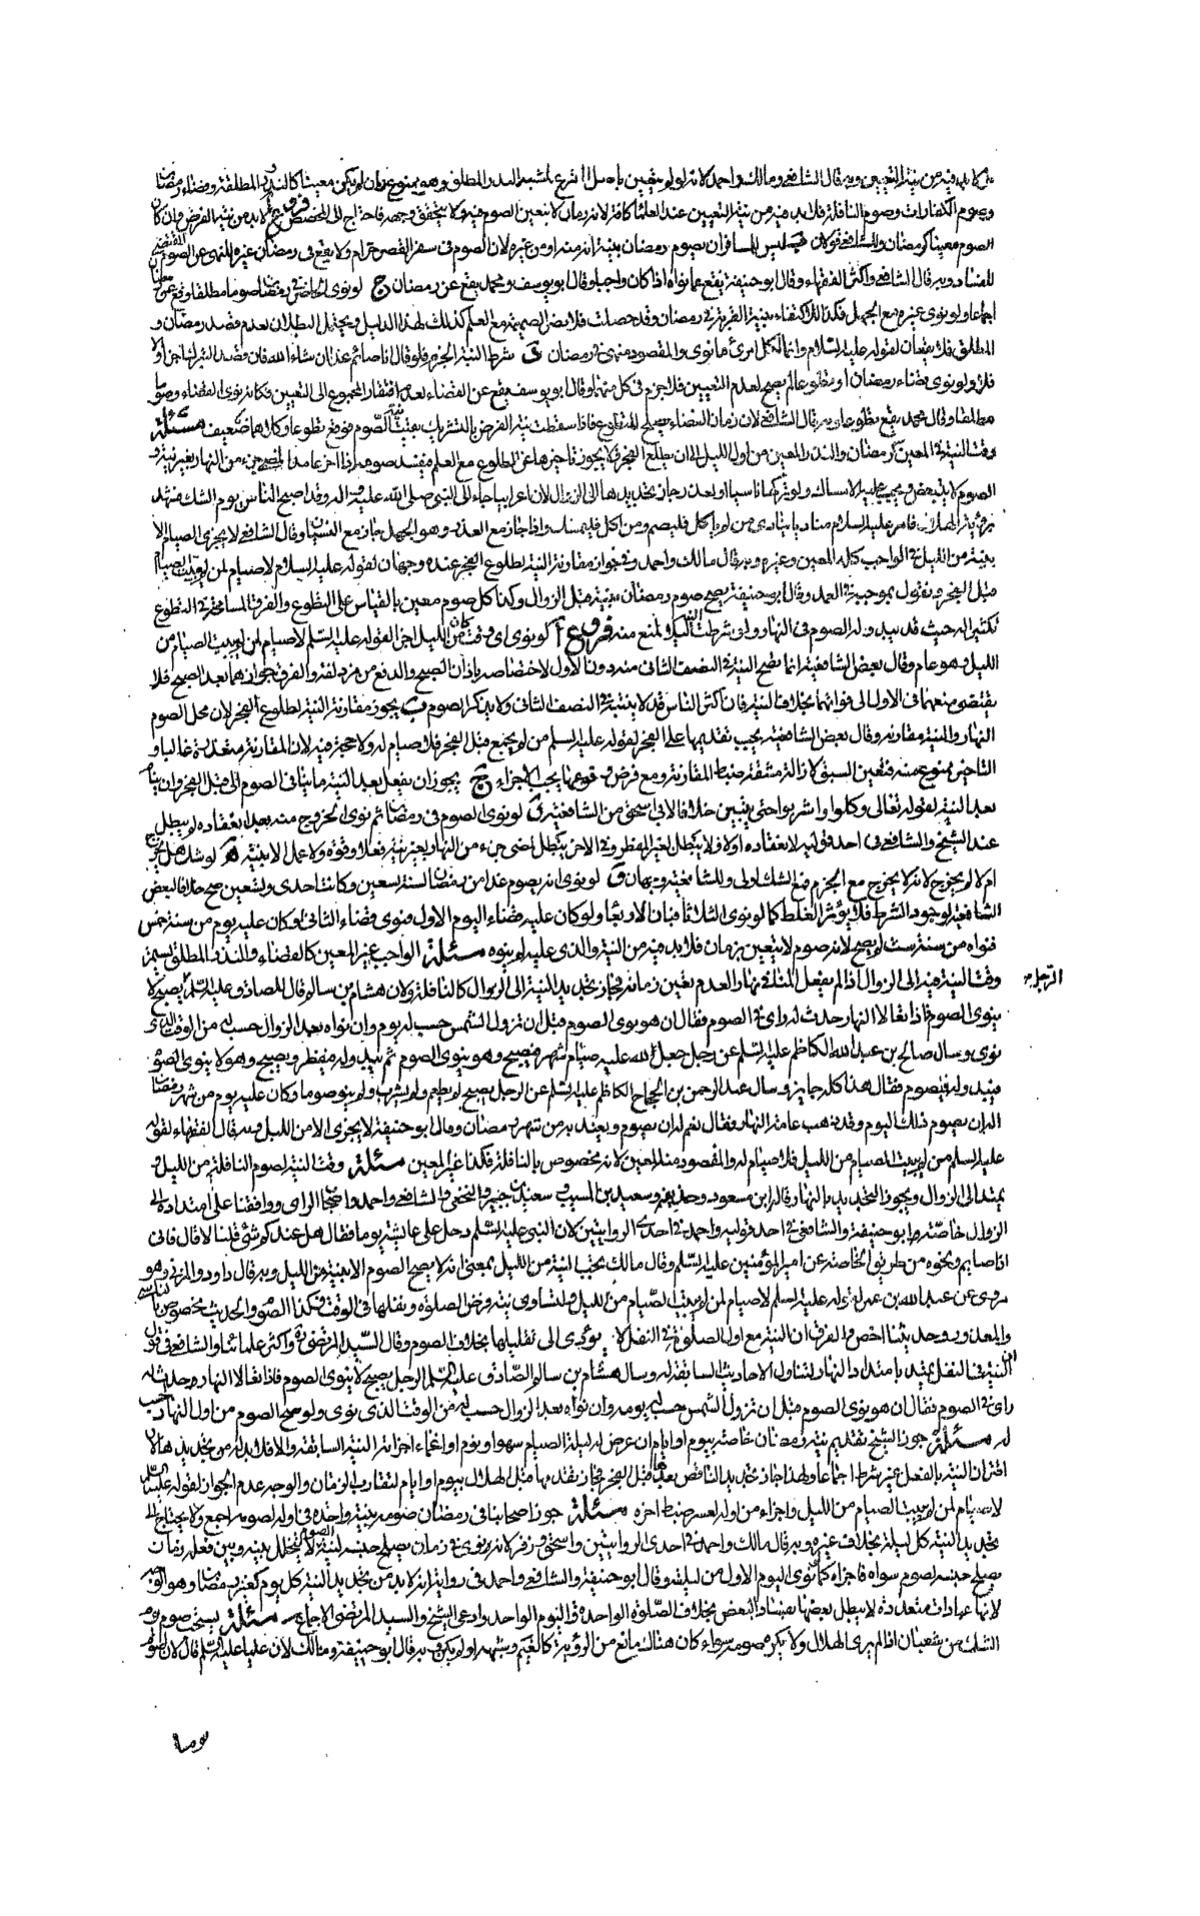 فلا بد فيه من نية التعيين وبه قال الشافعي ومالك واحمد لانه لو لم يتعين باصل الشرع اشبه النذر المطلق وهو ممنوع وان لم يكن معينا كالنذور المطلقة وقضاء رمضان
وصوم الكفارات وصوم النافلة فلا بد فيه من نية التعيين عند العلماء كافة لانه زمان لا يتعين الصوم فيه ولا يتحقق وجهه فاحتاج الى المخصص فروع لا بد من نية الفرض وان كان
الصوم معينا كرمضان وللشافعي قولان ليس للمسافر ان يصوم رمضان بنية انه منه او من غيره لان الصوم في سفر القصر حرام ولا يقع في رمضان غيره للنهي عن الصوم المقتضي
للفساد وبه قال الشافعي واكثر الفقهاء وقال ابو حنيفة يقع عما نواه اذا كان واجبا وقال ابو يوسف ومحمد يقع عن رمضان ج لو نوى الحاضر في رمضان صوما مطلقا وقع عن رمضان
اجماعا ولو نوى غيره مع الجهل فكذلك للاكتفاء بنية القربة في رمضان وقد حصلت فلا تضر الضميمة ومع العلم كذلك لهذا الدليل ويحتمل البطلان لعدم قصد رمضان و
المطلق فلا يقعان لقوله عليه السلام وانما لكل امرئ ما نوى والمقصود منهي في رمضان شرط النية الجزم فلو قال انا صائم غدا ان شاء الله فان قصد التبرك اجزأ والا
فلا ولو نوى قضاء رمضان او تطوعا لم يصح لعدم التعيين فلا جزم في كل منهما وقال ابو يوسف يقع عن القضاء لعدم افتقار المجموع الى التعيين فكانه نوى القضاء وصوما
مطلقا وقال محمد يقع تطوعا وبه قال الشافعي لان زمان القضاء يصلح للتطوع فاذا سقطت نية الفرض بالتشريك بقيت نية الصوم فوقع تطوعا وكلاهما ضعيف مسئلة
وقت النية في المعين كرمضان والنذر المعين من اول الليل الى ان يطلع الفجر ولا يجوز تاخيرها عن الطلوع مع العلم فيفسد صومه اذا اخر عامدا لمضي جزء من النهار بغير نية و
الصوم لا يتبعض ويجب عليه الامساك ولو تركها ناسيا او بعذر جاز تجديدها الى الزوال لان اعرابيا جاء الى النبي صلى الله عليه واله وقد اصبح الناس يوم الشك فشهد
برؤية الهلال فامر عليه السلام مناديا ينادي من لم ياكل فليصم ومن اكل فليمسك واذا جاز مع العذر وهو الجهل جاز مع النسيان وقال الشافعي لا يجزي الصيام الا
بنية من الليل في الواجب كله المعين وغيره وبه قال مالك واحمد وفي جواز مقارنة النية لطلوع الفجر عنده وجهان لقوله عليه السلام لا صيام لمن لم يبيت الصيام
قبل الفجر ونقول بموجبه في العمد وقال ابو حنيفة يصح صوم رمضان بنية قبل الزوال وكذا كل صوم معين بالقياس على التطوع والفرق المسامحة في التطوع
تكثيرا له حيث قد يبدو له الصوم في النهار ولو شرطت النية ليلا لمنع منه فروع آ لو نوى اي وقت كان من الليل اجزأ لقوله عليه السلم لا صيام لمن لم يبيت الصيام من
الليل وهو عام وقال بعض الشافعية انما تصح النية في النصف الثاني منه دون الاول لاختصاصه باذان الصبح والدفع من مزدلفة والفرق جوازهما بعد الصبح فلا
يقتضي منعهما في الاول الى فواتهما بخلاف النية فان اكثر الناس قد لا ينتبه في النصف الثاني ولا يذكر الصوم ب يجوز مقارنة النية لطلوع الفجر لان محل الصوم
النهار والنية مقارنة وقال بعض الشافعية يجب تقديمها على الفجر لقوله عليه السلم من لم يجمع قبل الفجر فلا صيام له ولا حجة فيه لان المقارنة متعذرة غالبا و
التاخير ممنوع منه فتعين السبق لازالة مشقة ضبط المقارنة ومع فرض وقوعها يجب الاجزاء ج يجوز ان يفعل بعد النية ما ينافي الصوم الى قبل الفجر وان ينام
بعد النية لقوله تعالى وكلوا واشربوا حتى يتبين خلافا لابي اسحق من الشافعية د لو نوى الصوم في رمضان ثم نوى الخروج منه بعد انعقاده لم يبطل
عند الشيخ والشافعي في احد قوليه لانعقاده اولا فلا يبطل بغير المفطر وفي الاخر يبطل لمضي جزء من النهار بغير نية فعلا وقوة ولا عمل الا بنية ه لو شك هل يخرج
ام لا لم يخرج لانه لا يخرج مع الجزم فمع الشك اولى وللشافعية وجهان و لو نوى انه يصوم غدا من رمضان لسنة تسعين وكانت احدى وتسعين صح خلافا لبعض
الشافعية لوجود الشرط فلا يؤثر الغلط كما لو نوى الثلاثاء فبان الاربعاء ولو كان عليه قضاء اليوم الاول فنوى قضاء الثاني او كان عليه يوم من سنة خمس
فنواه من سنة ست لم يصح لانه صوم لا يتعين بزمان فلا بد فيه من النية والذي عليه لم ينوه مسئلة الواجب غير المعين كالقضاء والنذر المطلق يستمر
وقت النية فيه الى الزوال اذا لم يفعل المنافي نهارا لعدم تعين زمانه فجاز تجديد النية الى الزوال كالنافلة ولان هشام بن سالم قال للصادق عليه السلم يصبح لا
ينوي الصوم فاذا تعالى النهار حدث له راي في الصوم فقال ان هو نوى الصوم قبل ان تزول الشمس حسب له يومه وان نواه بعد الزوال حسب له من الوقت الذي
نوى وسال صالح بن عبد الله الكاظم عليه السلم عن رجل جعل لله عليه صيام شهر فيصبح وهو ينوي الصوم ثم يبدو له فيفطر ويصبح وهو لا ينوي الصوم
فيبدو له فيصوم فقال هذا كله جايز وسال عبد الرحمن بن الحجاج الكاظم عليه السلم عن الرجل يصبح لم يطعم ولم يشرب ولم ينو صوما وكان عليه يوم من شهر رمضان
اله ان يصوم ذلك اليوم وقد ذهب عامة النهار فقال نعم له ان يصوم ويعتد به من شهر رمضان وقال ابو حنيفة لا يجزي الا من الليل وبه قال الفقهاء لقوله
عليه السلم من لم يبيت الصيام من الليل فلا صيام له والمقصود منه المعين لانه مخصوص بالنافلة فكذا غير المعين مسئلة وقت النية لصوم النافلة من الليل و
يمتد الى الزوال ويجوز التجديد بالنهار قاله ابن مسعود وحذيفة وسعيد بن المسيب وسعيد بن جبير والنخعي والشافعي واحمد واصحاب الراي ووافقنا على امتداده الى
الزوال خاصة ابو حنيفة والشافعي في احد قوليه واحمد في احدى الروايتين لان النبي عليه السلم دخل على عائشة يوما فقال هل عندكم شئ قلنا لا قال فاني
اذا صايم ونحوه من طريق الخاصة عن امير المؤمنين عليه السلم وقال مالك يجب النية من الليل بمعنى انه لا يصح الصوم الا بنية من الليل وبه قال داود والمزني وهو
مروي عن عبد الله بن عمر لقوله عليه السلم لا صيام لمن لم يبيت الصيام من الليل ولتساوي نية فرض الصلوة ونفلها في الوقت فكذا الصوم والحديث مخصوص بالناسي
والمعذور وحديثنا اخص والفرق ان النية مع اول الصلوة في النفل لا يؤدي الى تقليلها بخلاف الصوم وقال السيد المرتضى واكثر علمائنا والشافعي في قول
ان النية في النفل يمتد بامتداد النهار لتناول الاحاديث السابقة له وسال هشام بن سالم الصادق عليه السلم الرجل يصبح لا ينوي الصوم فاذا تعالى النهار حدث له
راي في الصوم فقال ان هو نوى الصوم قبل ان تزول الشمس حسب له يومه وان نواه بعد الزوال حسب له من الوقت الذي نوى ولو صح الصوم من اول النهار حسب
له مسئلة جوز الشيخ تقديم نية رمضان خاصة بيوم او ايام ان عرض له ليلة الصيام سهو او نوم او اغماء اجزأته النية السابقة والا فلا بد له من تجديدها لان
اقتران النية بالفعل غير شرط اجماعا ولهذا جاز تجديد الناقض بعدها قبل الفجر فجاز تقديمها قبل الهلال بيوم او ايام لتقارب الزمان والوجه عدم الجواز لقوله عليه السلم
لا صيام لمن لم يبيت الصيام من الليل واجزاءه من اوله لعسر ضبط اخره مسئلة جوز اصحابنا في رمضان صومه بنية واحدة في اوله لصومه اجمع ولا يحتاج الى
تجديد النية كل ليلة بخلاف غيره وبه قال مالك واحمد في احدى الروايتين واسحق وزفر لانه نوى في زمان يصلح جنسه لنية الصوم لا يتخلل بينه وبين فعله زمان
يصلح جنسه لصوم سواه فاجزأه كما لو نوى اليوم الاول من ليلته وقال ابو حنيفة والشافعي واحمد في رواية انه لا بد من تجديد النية كل يوم كغير رمضان وهو الوجه
لانها عبادات متعددة لا يبطل بعضها بفساد البعض بخلاف الصلوة الواحدة واليوم الواحد وادعى الشيخ والسيد المرتضى الاجماع مسئلة يستحب صوم يوم
الشك من شعبان اذا لم ير الهلال ولا يكره صومه سواء كان هناك مانع من الرؤية كالغيم وشبهه او لم يكن وبه قال ابو حنيفة ومالك لان عليا عليه السلم قال لان اصوم
يوما